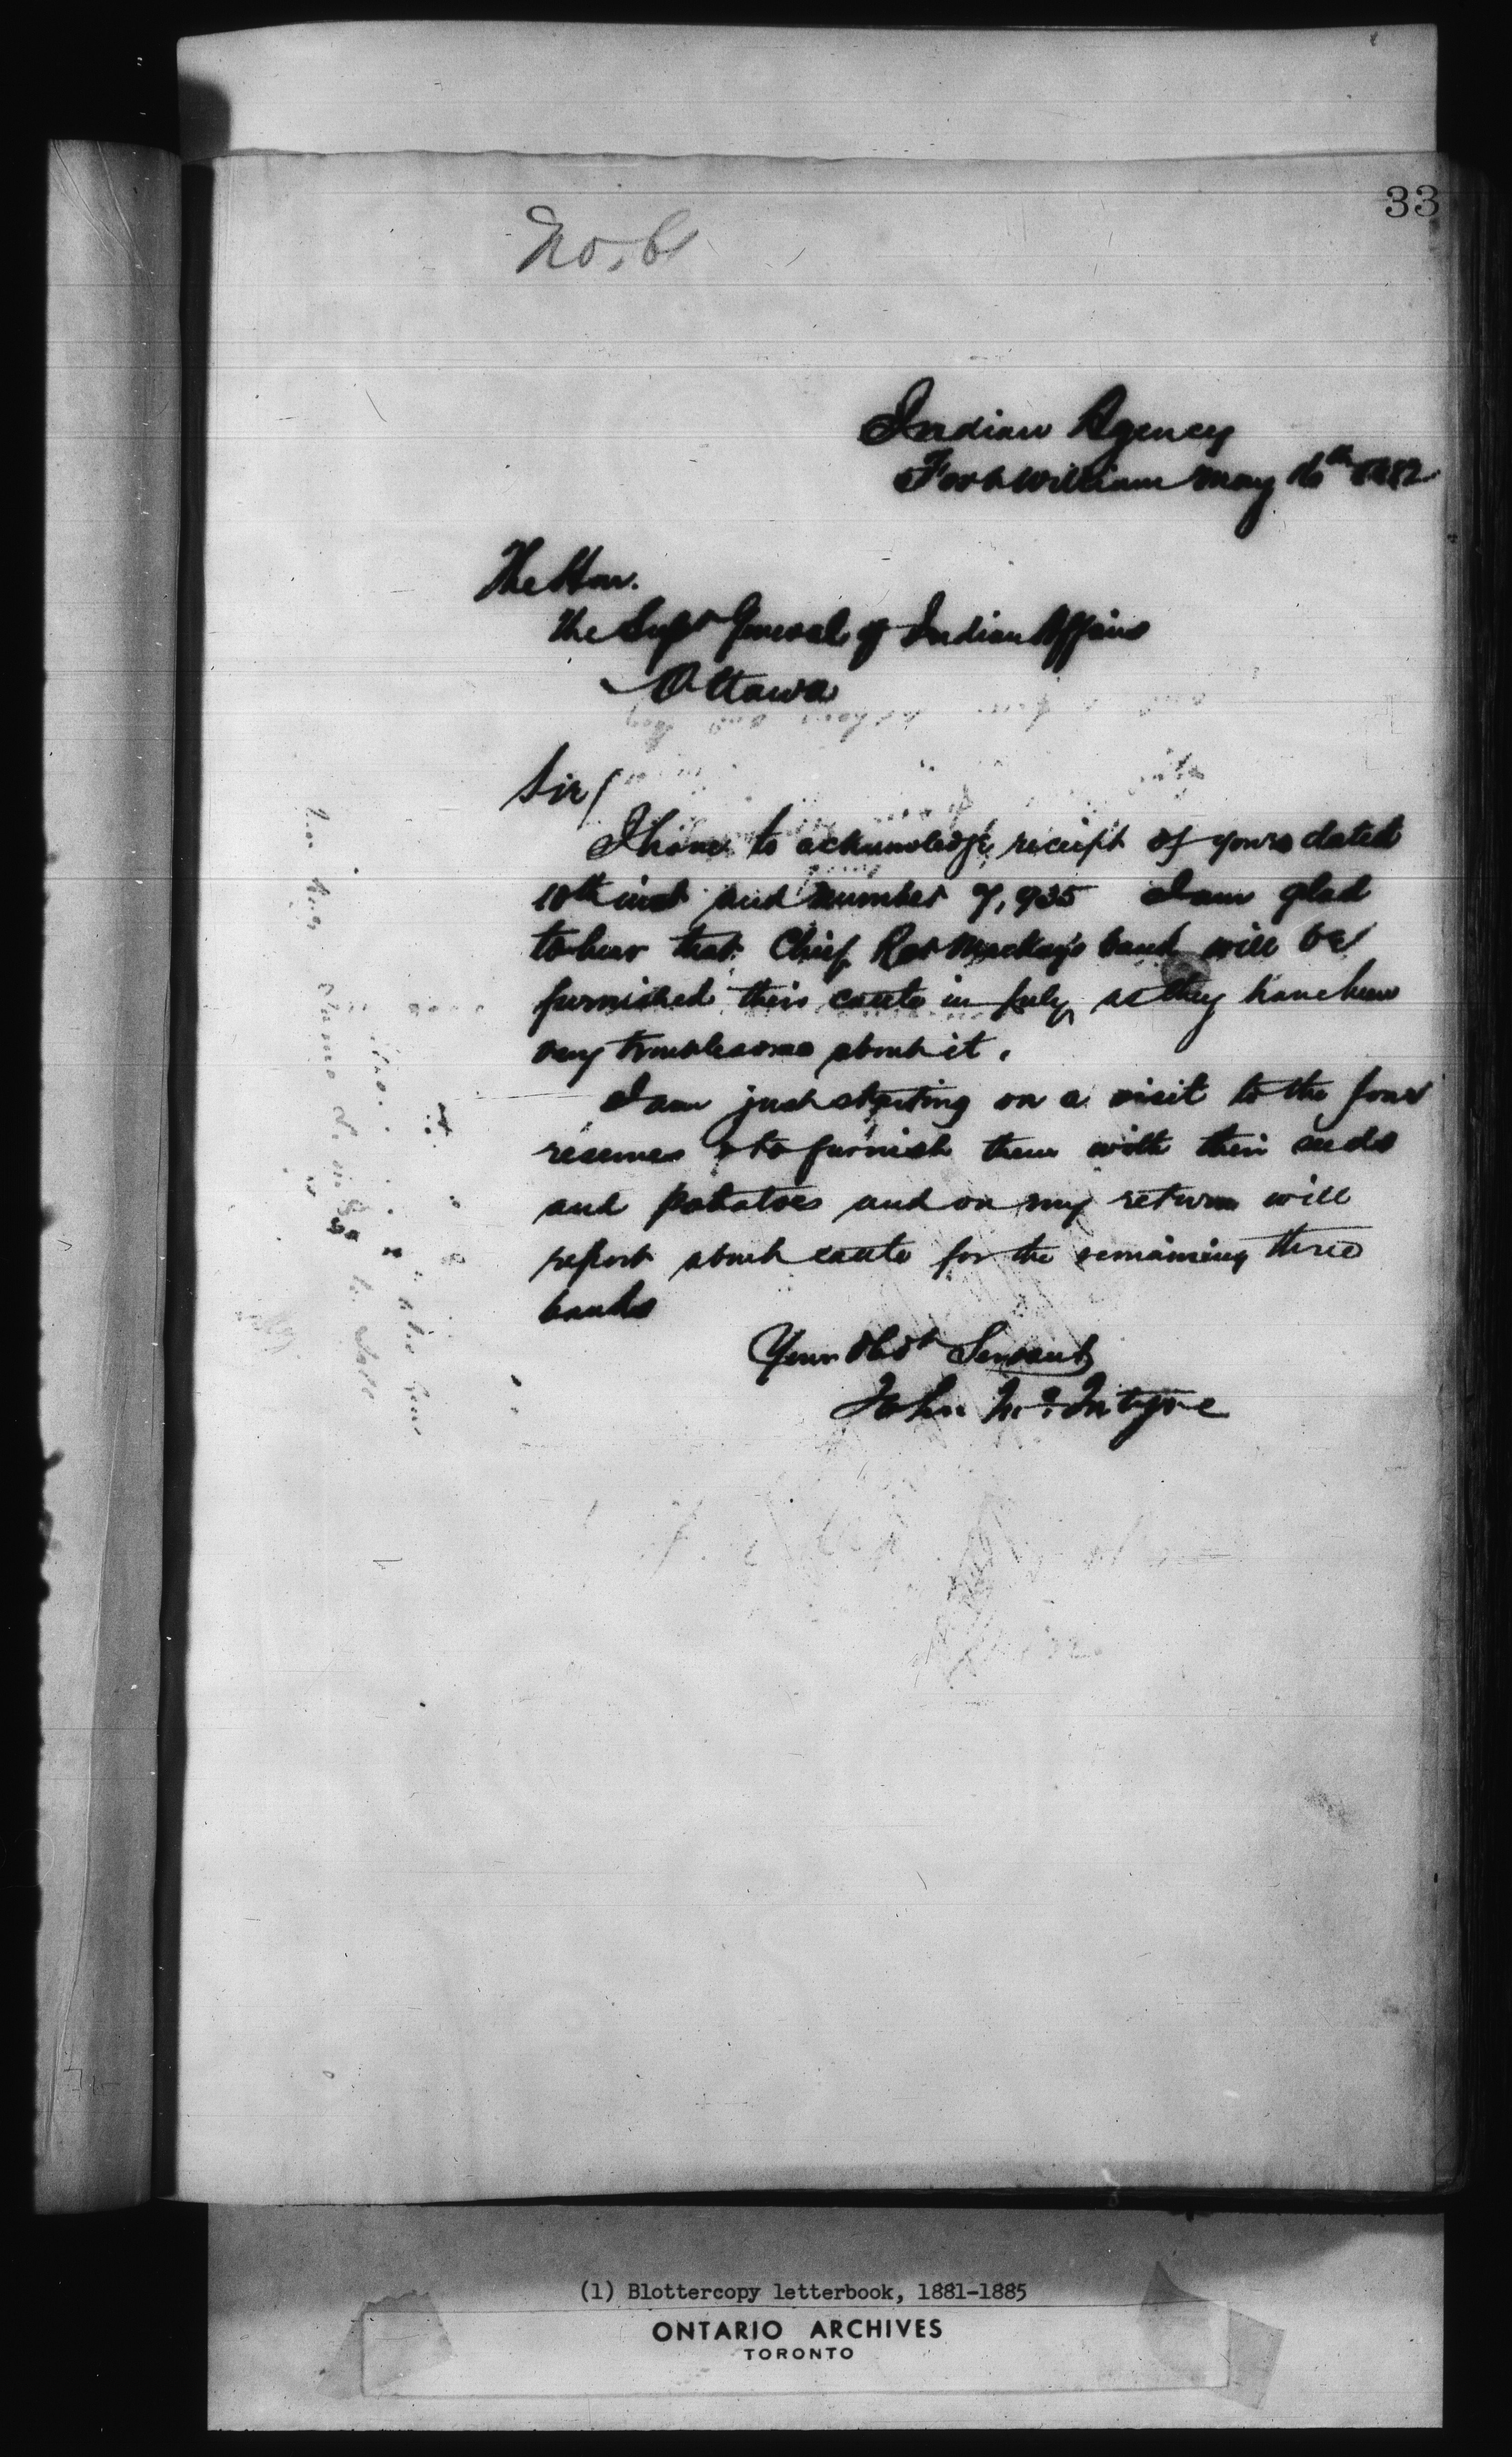 33
No. 6
Indian Agency
Fort William May 16th 1882
The Hon.
the Supt General of Indian Affairs
Ottawa
Sir/
I have to acknowledge receipt of yours dated
10th inst and number 7,935 I am glad
to hear that Chief Mackay's band will be
furnished their cattle in July, as they have been
very troublesome about it.
I am just starting on a visit to the four
reserves to furnish them with their seeds
and potatoes and on my return will
report about cattle for the remaining three
bands
Your Obdt Servant
John McIntyre
(1) Blottercopy letterbook, 1881-1885
ONTARIO ARCHIVES
TORONTO